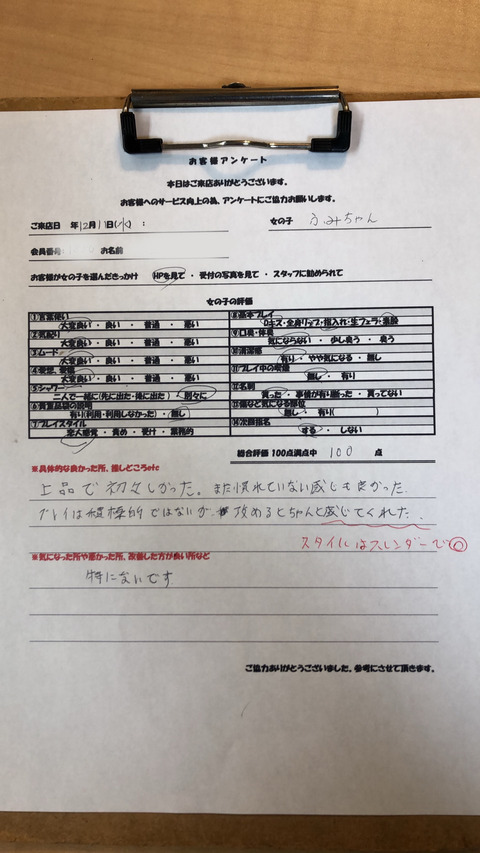 お客様アンケート
本日はご来店ありがとうございます。
お客様へのサービス向上の為、アンケートにご協力お願いします。
ご来店日 年12月11日(水) : 女の子 ふみちゃん
会員番号 お名前
お客様が女の子を選んだきっかけ HPを見て ・ 受付の写真を見て ・ スタッフに勧められて
女の子の評価
①言葉使い
大変良い ・ 良い ・ 普通 ・ 悪い
②気配り
大変良い ・ 良い ・ 普通 ・ 悪い
③ムード
大変良い ・ 良い ・ 普通 ・ 悪い
④愛想、愛嬌
大変良い ・ 良い ・ 普通 ・ 悪い
⑤シャワー
二人で一緒に(先に出た・後に出た) ・ 別々に
⑥貴重品袋の説明
有り(利用・利用しなかった) ・ 無し
⑦プレイスタイル
恋人感覚 ・ 責め ・ 受け ・ 業務的
⑧基本プレイ
Dキス・全身リップ・指入れ・生フェラ・素股
⑨口臭・体臭
気にならない ・ 少し臭う ・ 臭う
⑩清潔感
有り ・ やや気になる ・ 無し
⑪プレイ中の喫煙
無し ・ 有り
⑫名刺
貰った ・ 事情が有り断った ・ 貰ってない
⑬傷など気になる部位
無し ・ 有り( )
⑭次回指名
する ・ しない
総合評価 100点満点中 100 点
※具体的な良かった所、推しどころetc
上品で初々しかった。まだ慣れていない感じも良かった.
プレイは積極的ではないが 攻めるとちゃんと感じてくれた.
スタイルはスレンダーで◎
※気になった所や悪かった所、改善した方が良い所など
特にないです
ご協力ありがとうございました。参考にさせて頂きます。